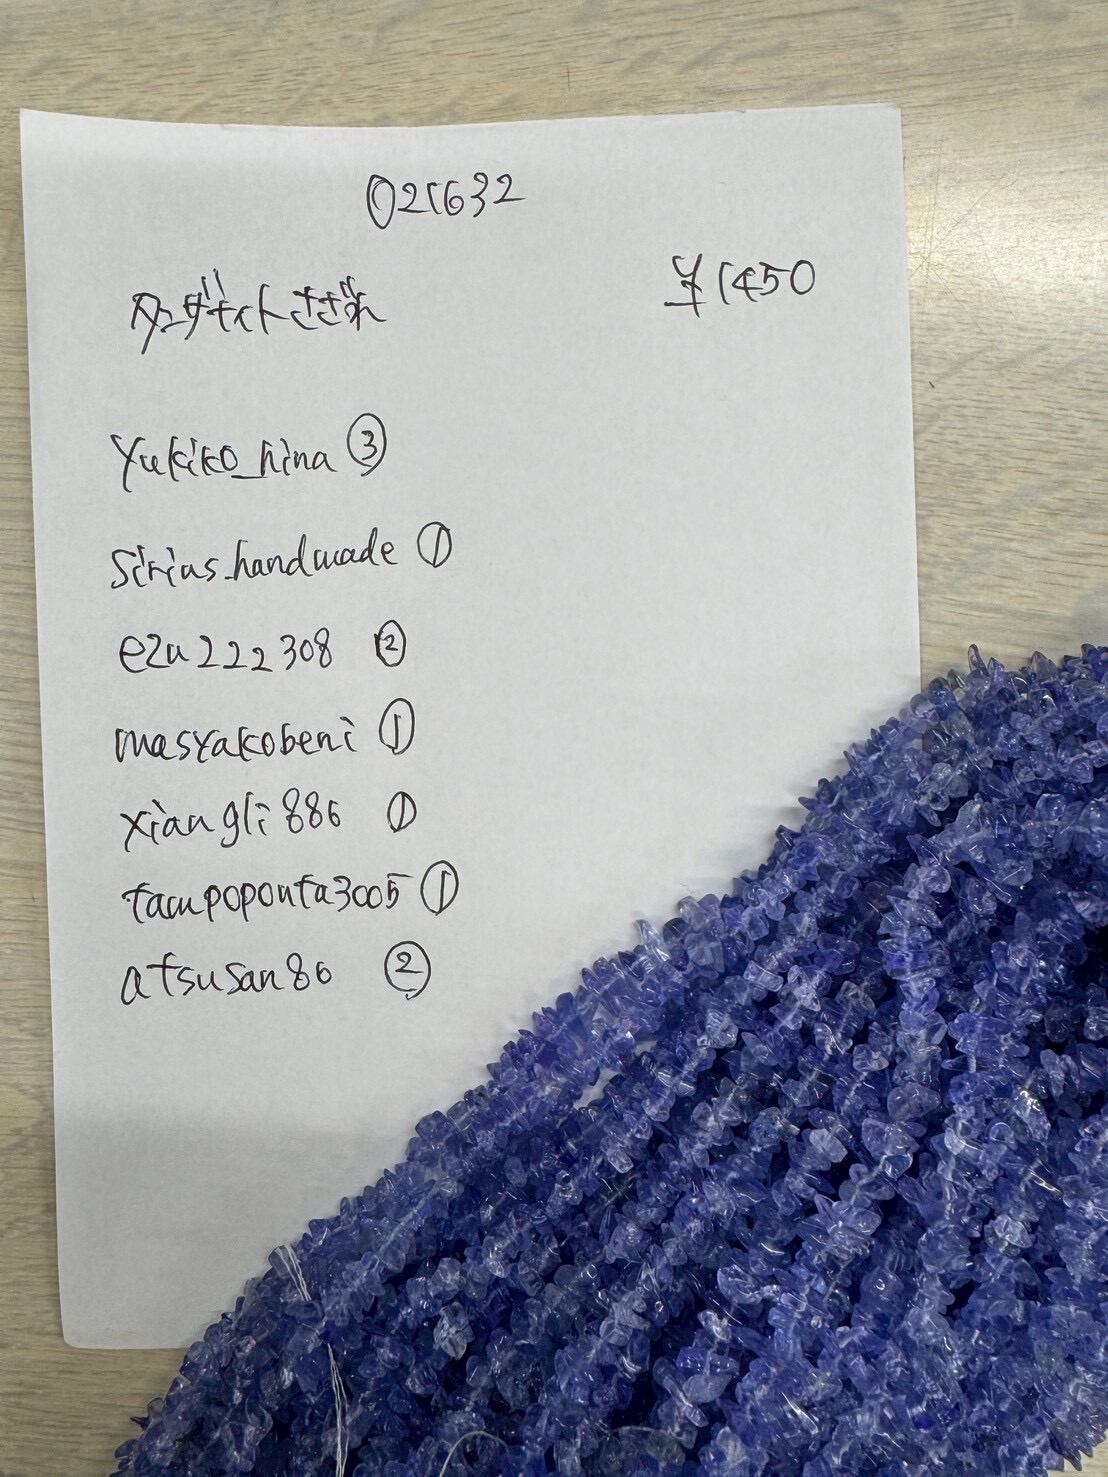 021632
タンザナイトさざれ
¥1450
Yukiko_hina ③
Sirius.handmade ①
ezu222308 ②
masyakobeni ①
xiangli886 ①
tampoponta3005 ①
atsusan86 ②